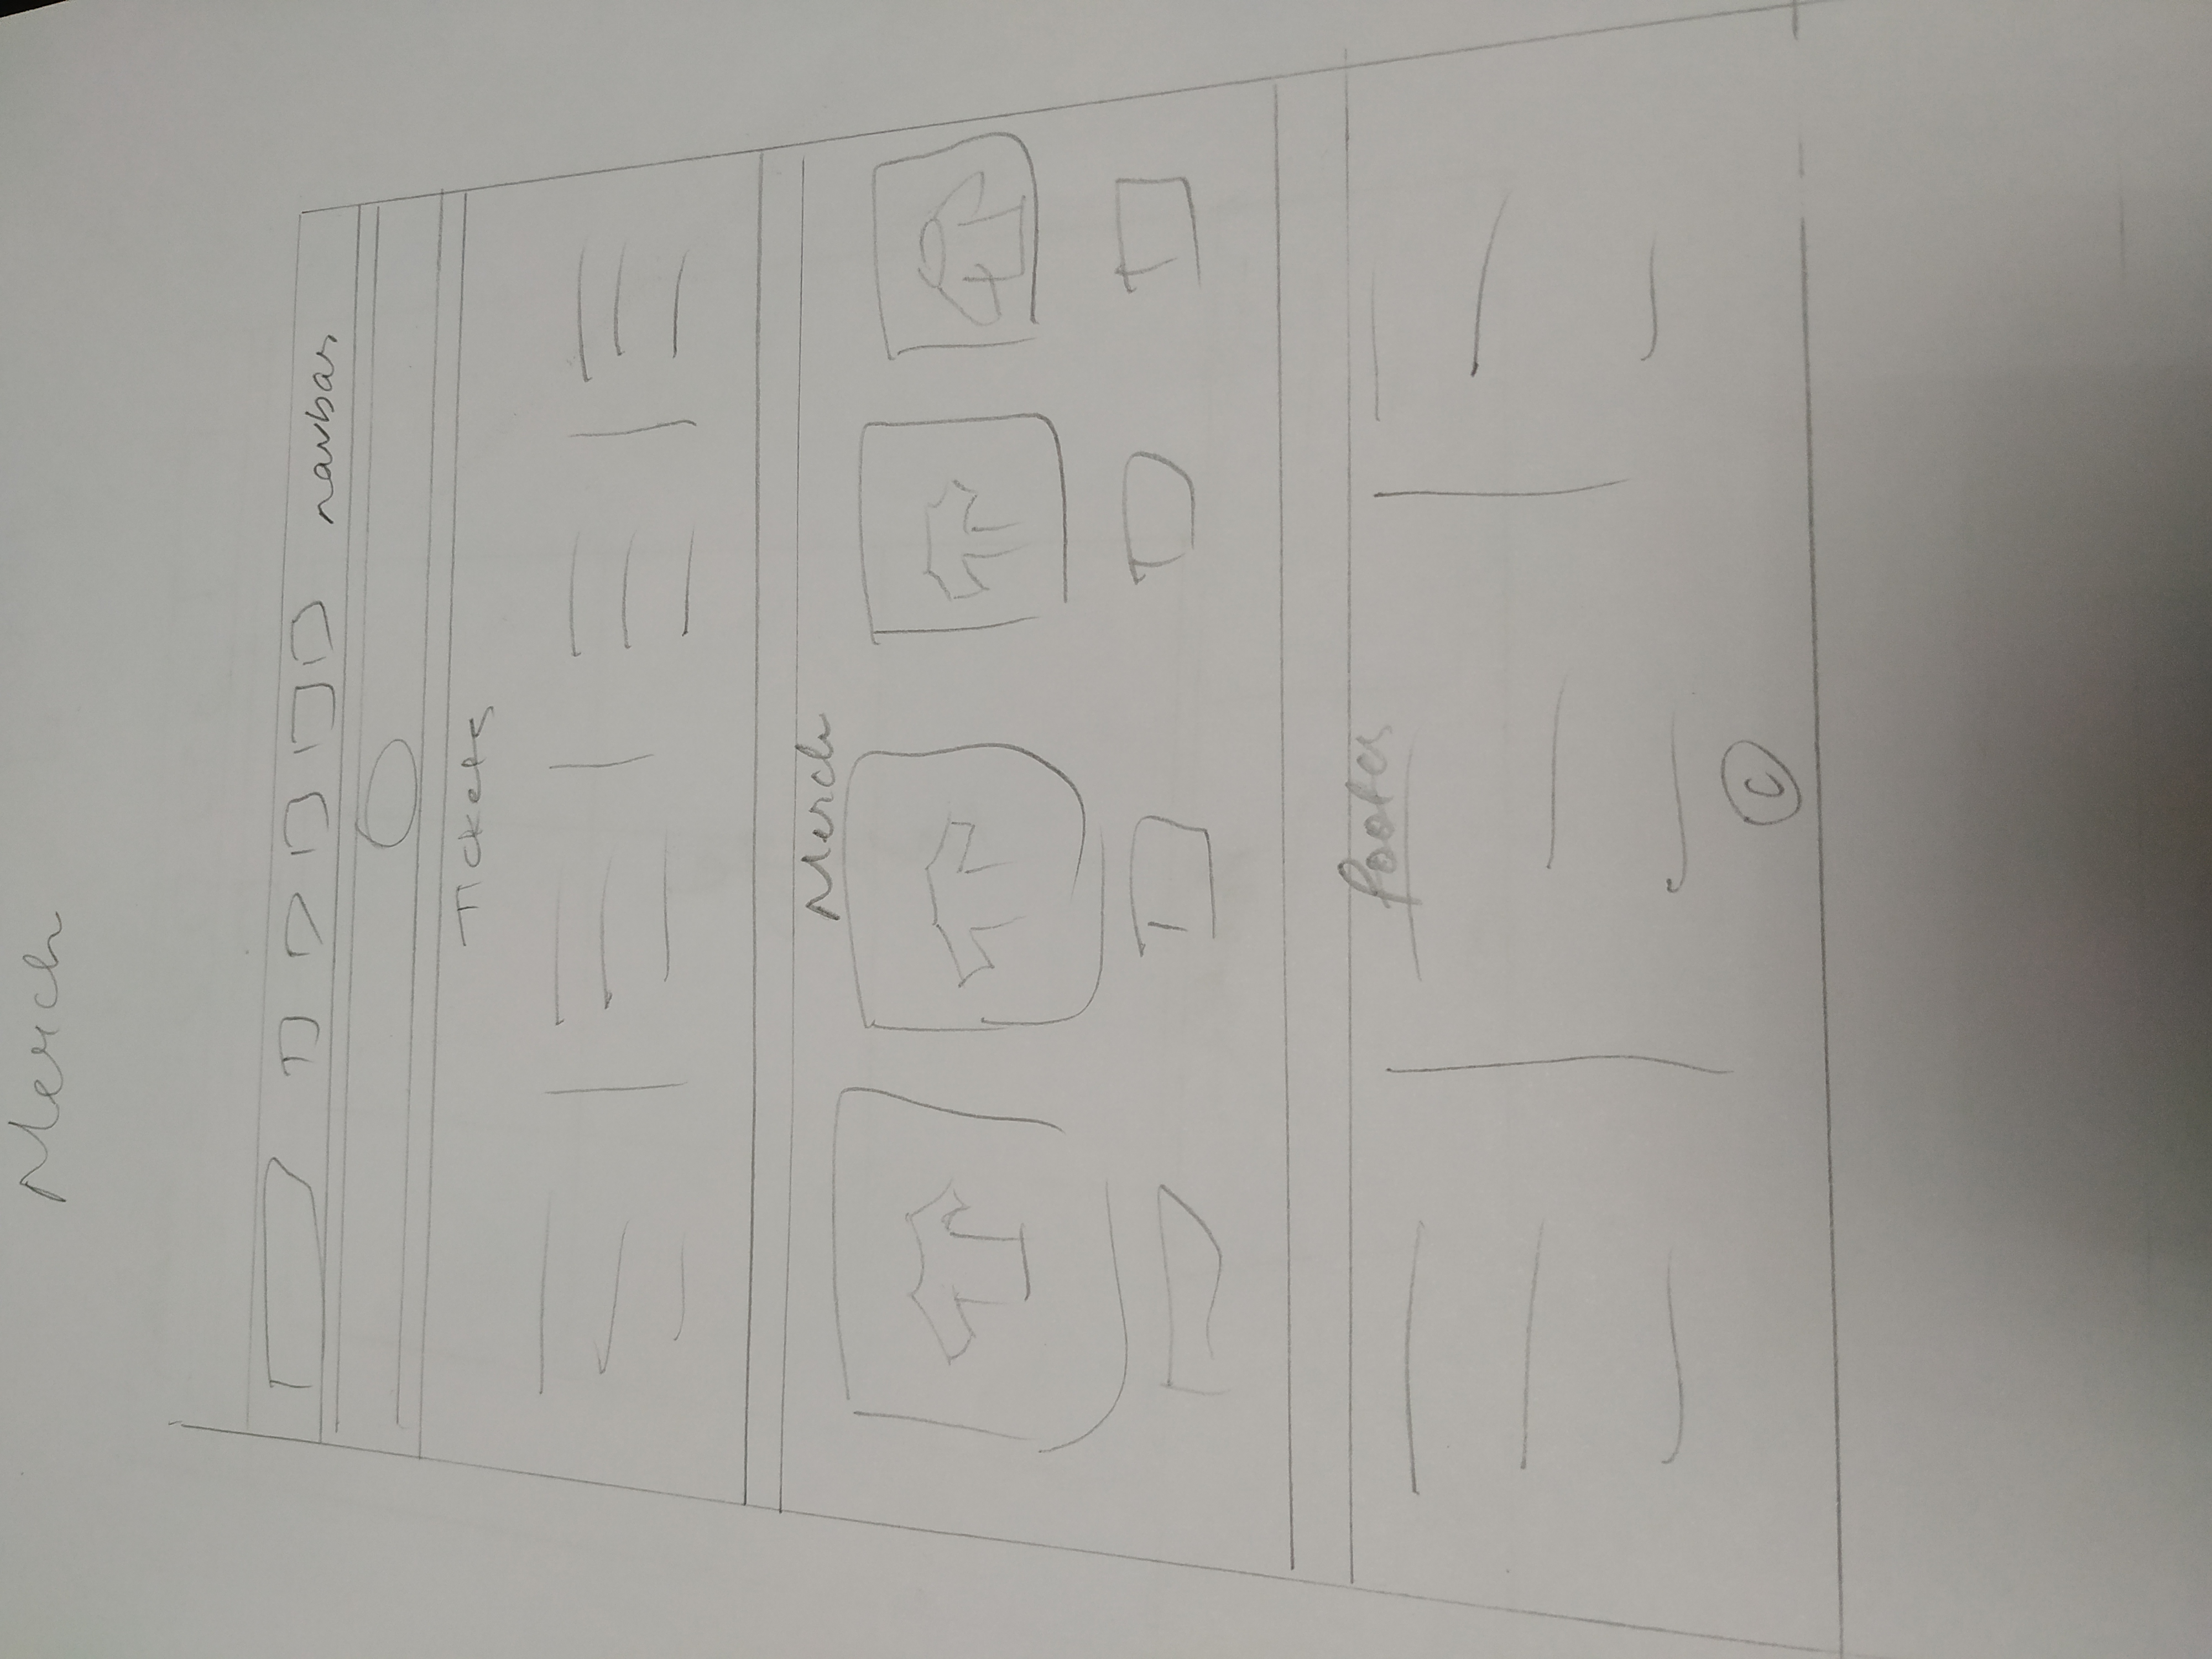 Merch
navbar
Tickets
Merch
footer
©